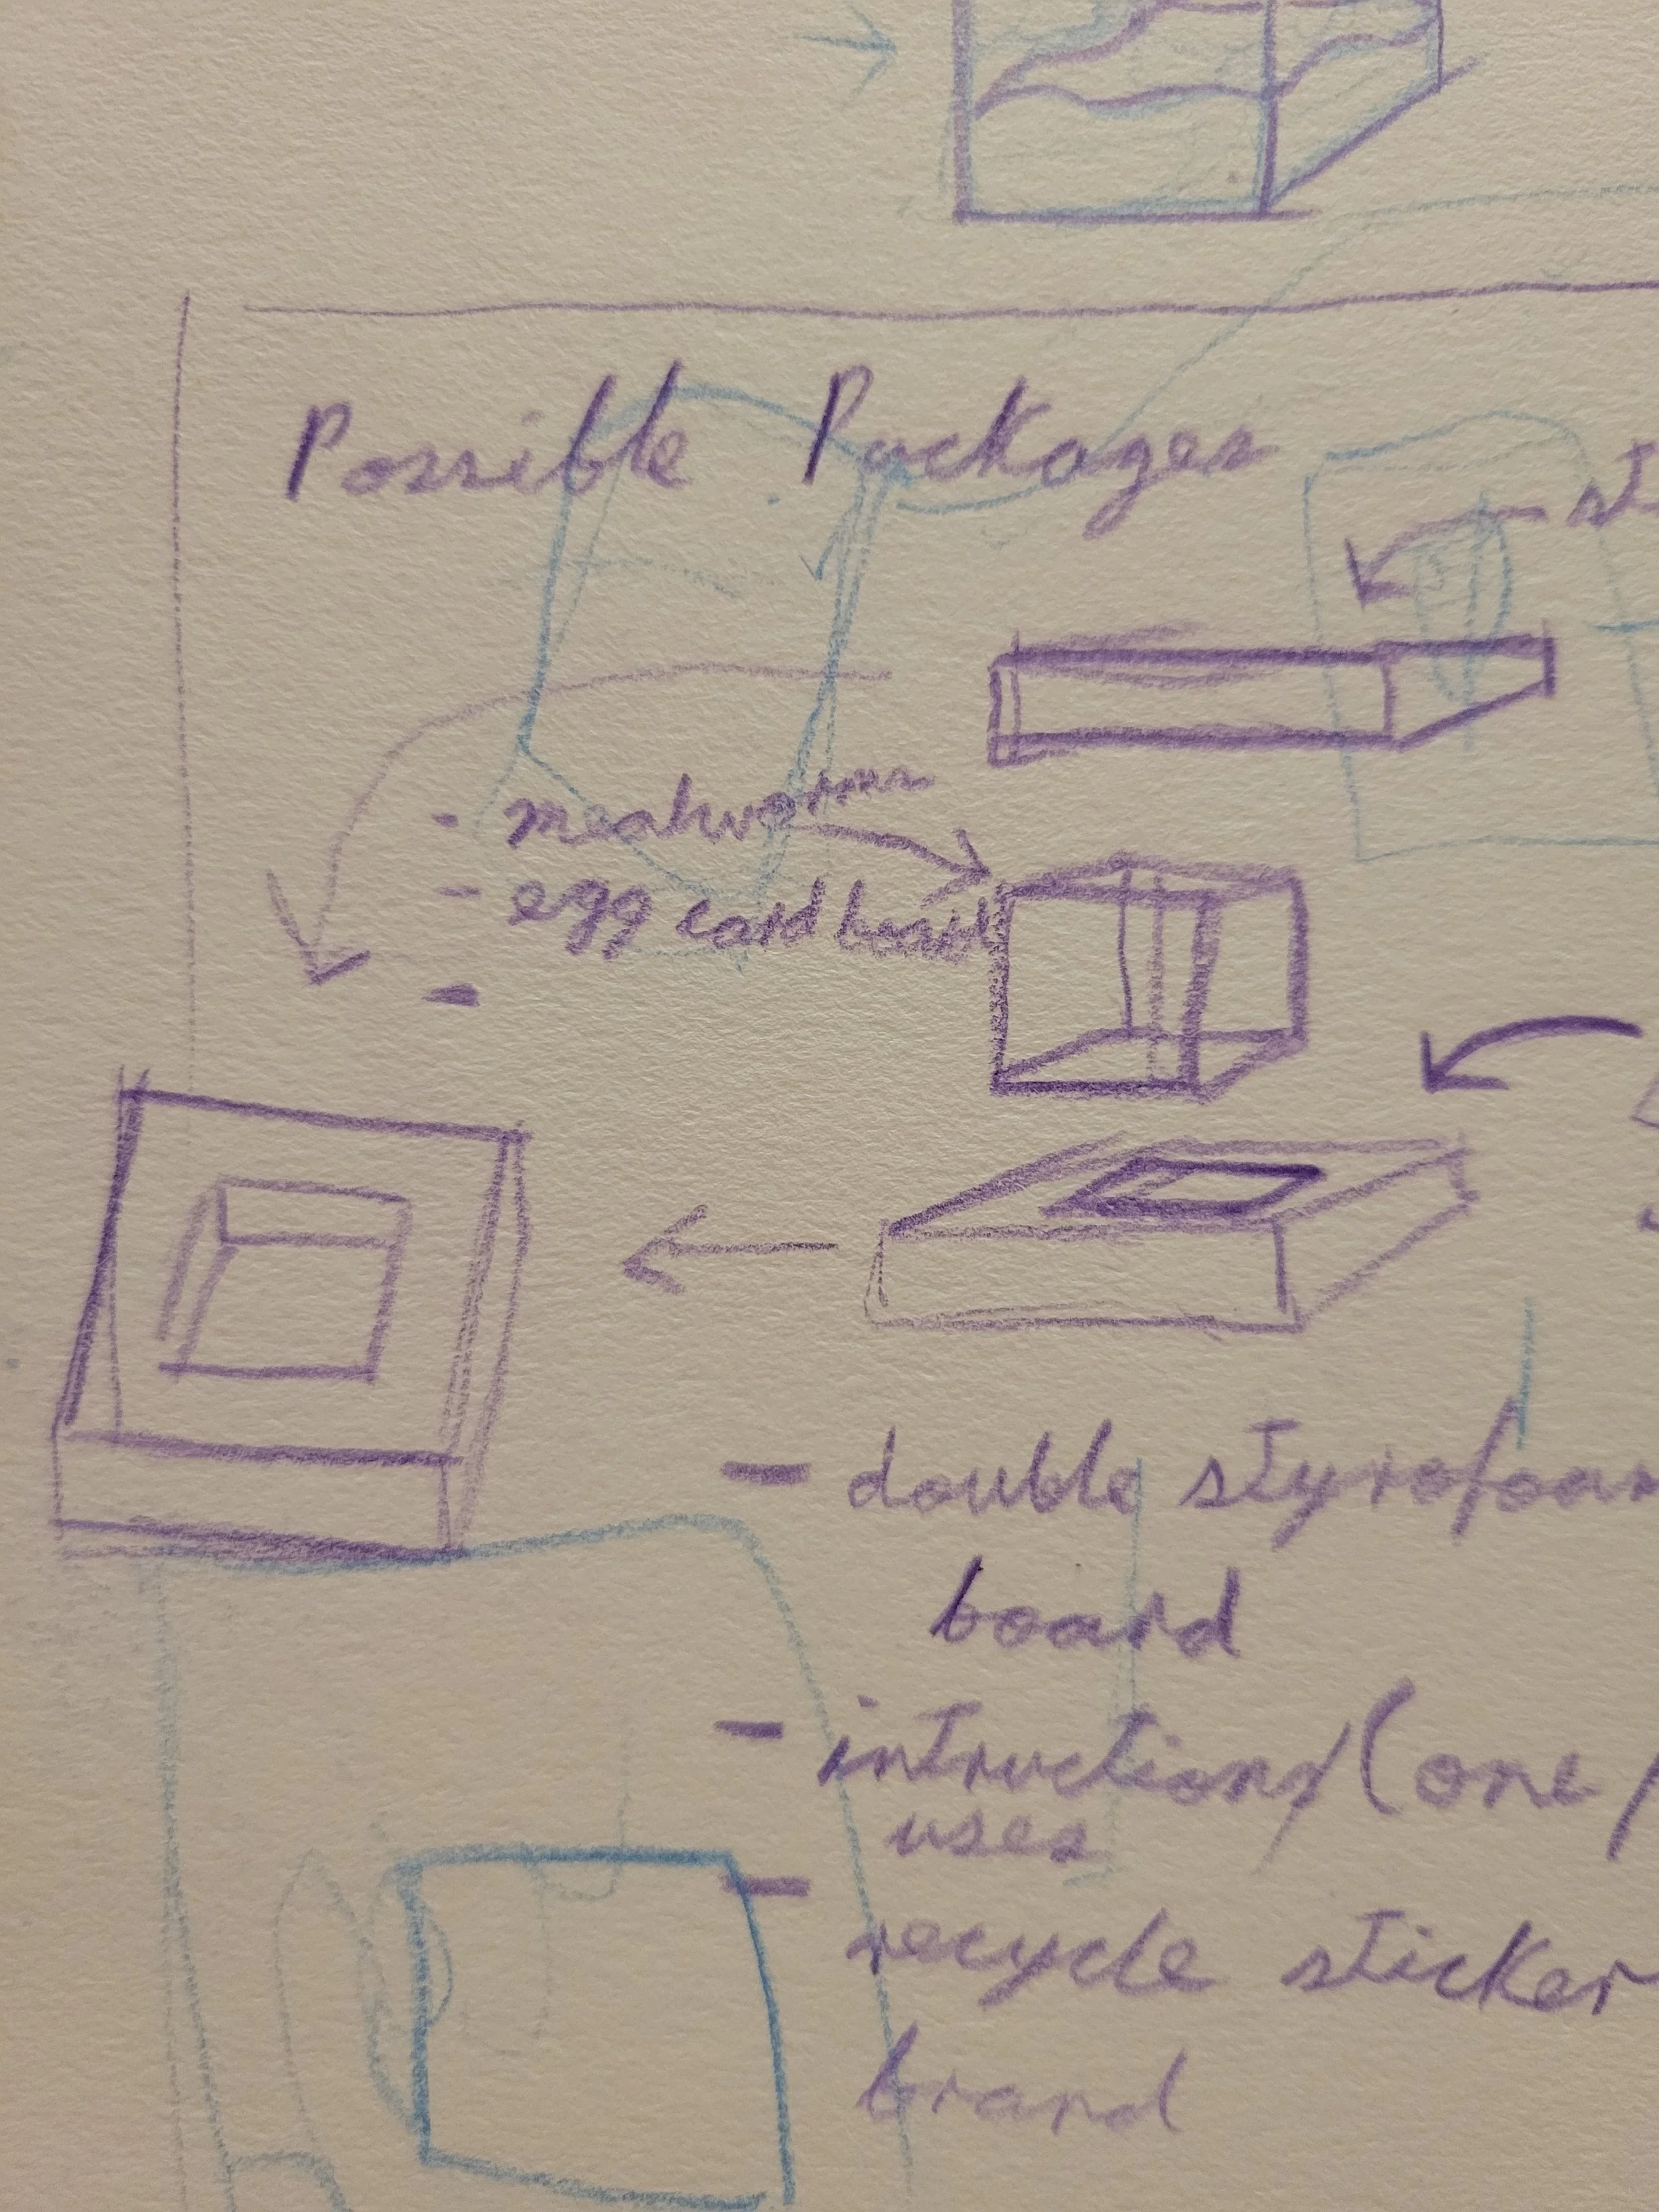 Possible Packages
st
- mealworms
- egg cardboard
-
- double styrofoam
board
- intructions/(one/
uses
- recycle sticker
brand